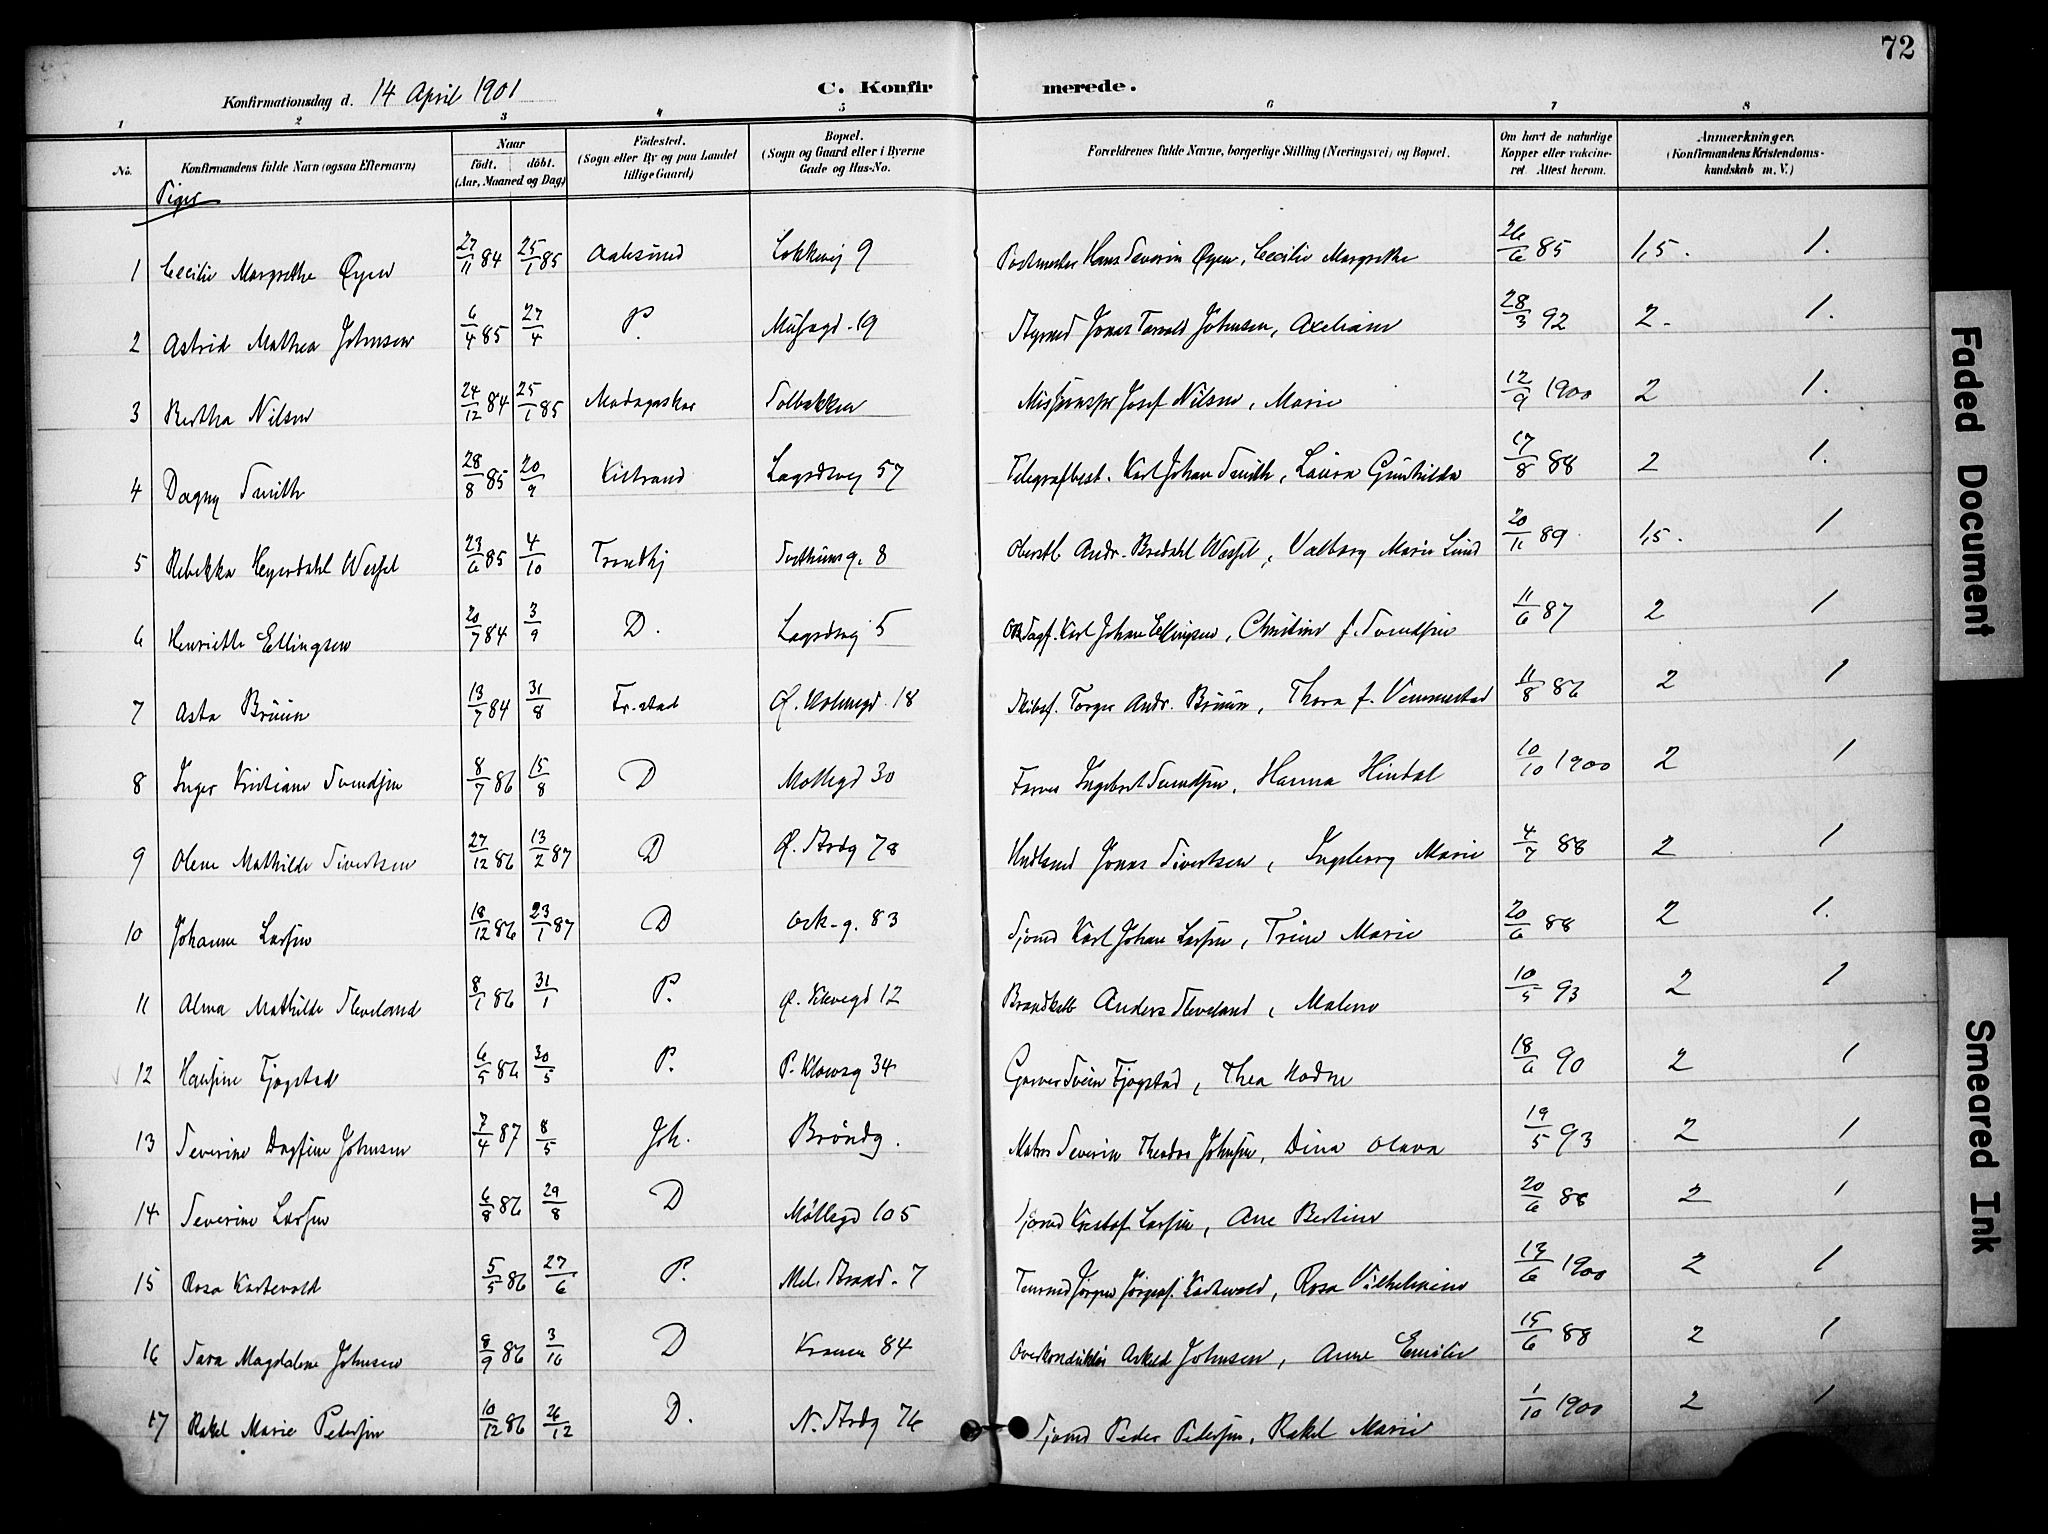 72
Konfirmationsdag d. 14 April 1901
C. Konfirmerede.
1 2 3 4 5 6 7 8
No. Konfirmandens fulde Navn (ogsaa Efternavn) Naar födt. döbt. (Aar, Maaned og Dag) Födested. (Sogn eller By og paa Landet tillige Gaard) Bopæl. (Sogn og Gaard eller i Byerne Gade og Hus-No. Forældrenes fulde Navne, borgerlige Stilling (Næringsvei) og Bopæl. Om havt de naturlige Kopper eller vakcineret. Attest herom. Anmærkninger. (Konfirmandens Kristendomskundskab m. V.)
Piger
1 Cecilie Margrethe Øyen 27/11 84 25/1 85 Aalesund Løkkevej 9 Postmester Hans Severin Øyen, Cecilie Margrethe 26/6 85 1,5. 1.
2 Astrid Mathea Johnsen 6/4 85 27/4 P. Musegd. 19 Styrmd Jonas Johnsen, Axeliane 28/3 92 2. 1.
3 Bertha Nilsen 24/12 84 25/1 85 Madagaskar Solbakken Josef Nilsen, Marie 12/9 1900 2 1.
4 Dagny Smith 28/8 85 20/9 Kistrand Lagårdsvej 57 Telegrafbest. Karl Johan Smith, Laura Gunhilda 17/8 88 2 1.
5 Rebekka Heyerdahl Wessel 23/6 85 4/10 Trondhj 8 Oberstl. Andr. Bredahl Wessel, Valborg Marie Lund 20/11 89 1,5. 1
6 Henriette Ellingsen 20/7 84 3/9 D. Lagårdsvej 5 Karl Johan Ellingsen, Christine f. Svendsen 11/6 87 2 1
7 Asta Bruun 13/7 84 31/8 Fr.stad Ø. Holmegd. 18 Skibsf. Torger Andr. Bruun, Thora f. Vemmestad 11/8 86 2 1
8 Inger Kristiane Svendsen 8/7 86 15/8 D Møllegd 30 Farver Ingebret Svendsen, Hanna Hindal 10/10 1900 2 1
9 Olene Mathilde Sivertsen 27/12 86 13/2 87 D Ø. Strdg 78 Jonas Sivertsen, Ingeborg Marie 4/7 88 2 1
10 Johanne Larsen 18/12 86 23/1 87 D 83 Sjømd Karl Johan Larsen, Trine Marie 20/6 88 2 1.
11 Alma Mathilde Fleveland 8/1 86 31/1 P. 12 Anders Fleveland, Malene 10/5 93 2 1
12 Hansine Fjogstad 6/5 86 30/5 P. P. Klowsg 34 Garver Svein Fjogstad, Thea Hodne 18/6 90 2 1
13 Severine Dagfine Johnsen 7/4 87 8/5 Joh. Bröndg. Matros Severin Theodor Johnsen, Dina Olava 19/5 93 2 1
14 Severine Larsen 6/8 86 29/8 D Möllegd 105 Sjømd Kristof. Larsen, Ane Bertine 20/6 88 2 1
15 Rosa Kastevold 5/5 86 27/6 P. Mel. Strand. 7 Kastevold, Rosa Vilhelmine 13/6 1900 2 1
16 Sara Magdalene Johnsen 8/9 86 3/10 D Kranen 84 Overkonduktør Johnsen, Anne Emilie 15/6 88 2 1
17 Rakel Marie Petersen 10/12 86 26/12 D. N. Strdg 76 Sjømd Peder Petersen, Rakel Marie 1/10 1900 2 1
Faded Document
Smeared Ink